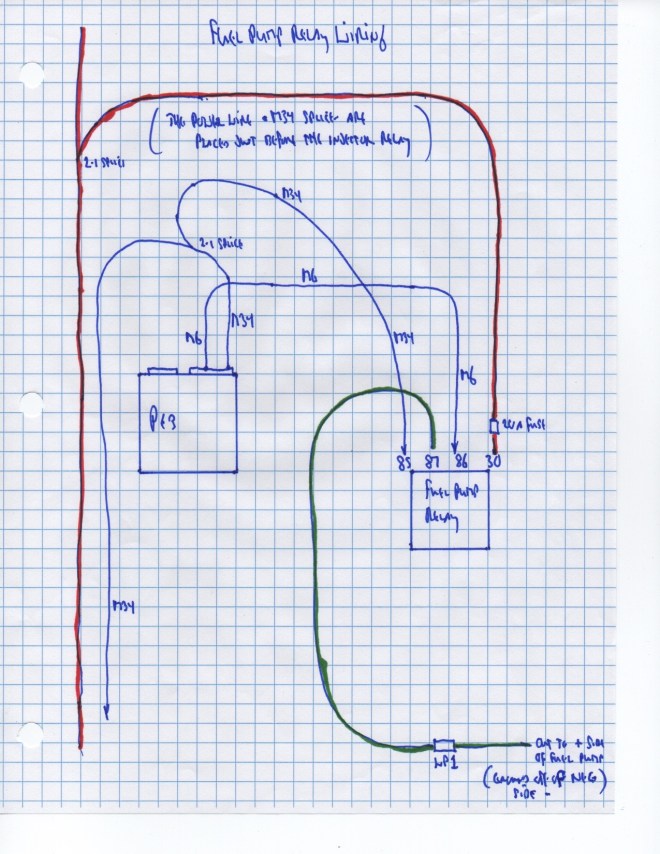 Fuel Pump Relay Wiring
(The Power Wire + M34 Splice are
placed just before the injector relay)
2-1 splice
M34
2-1 splice
M6
M34
M34
M6
M6
Pe3
20A Fuse
85 87 86 30
Fuel Pump
Relay
M34
WP1
Out to + side
of Fuel Pump
(Ground off of NEG)
side -